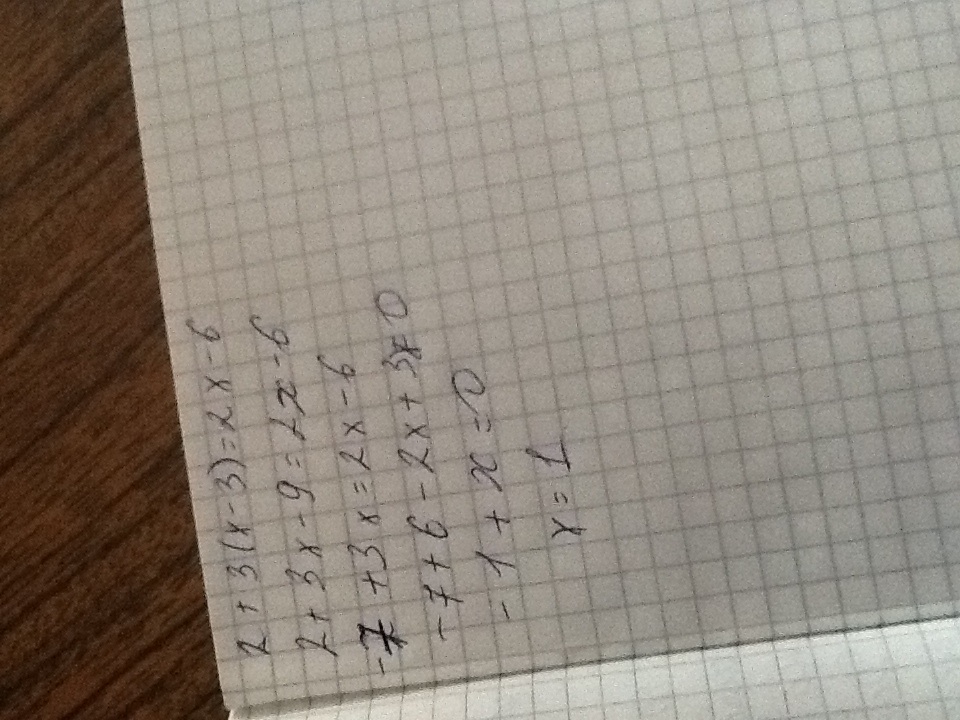 2 + 3(x - 3) = 2x - 6
2 + 3x - 9 = 2x - 6
-7 + 3x = 2x - 6
-7 + 6 - 2x + 3x = 0
-1 + x = 0
x = 1